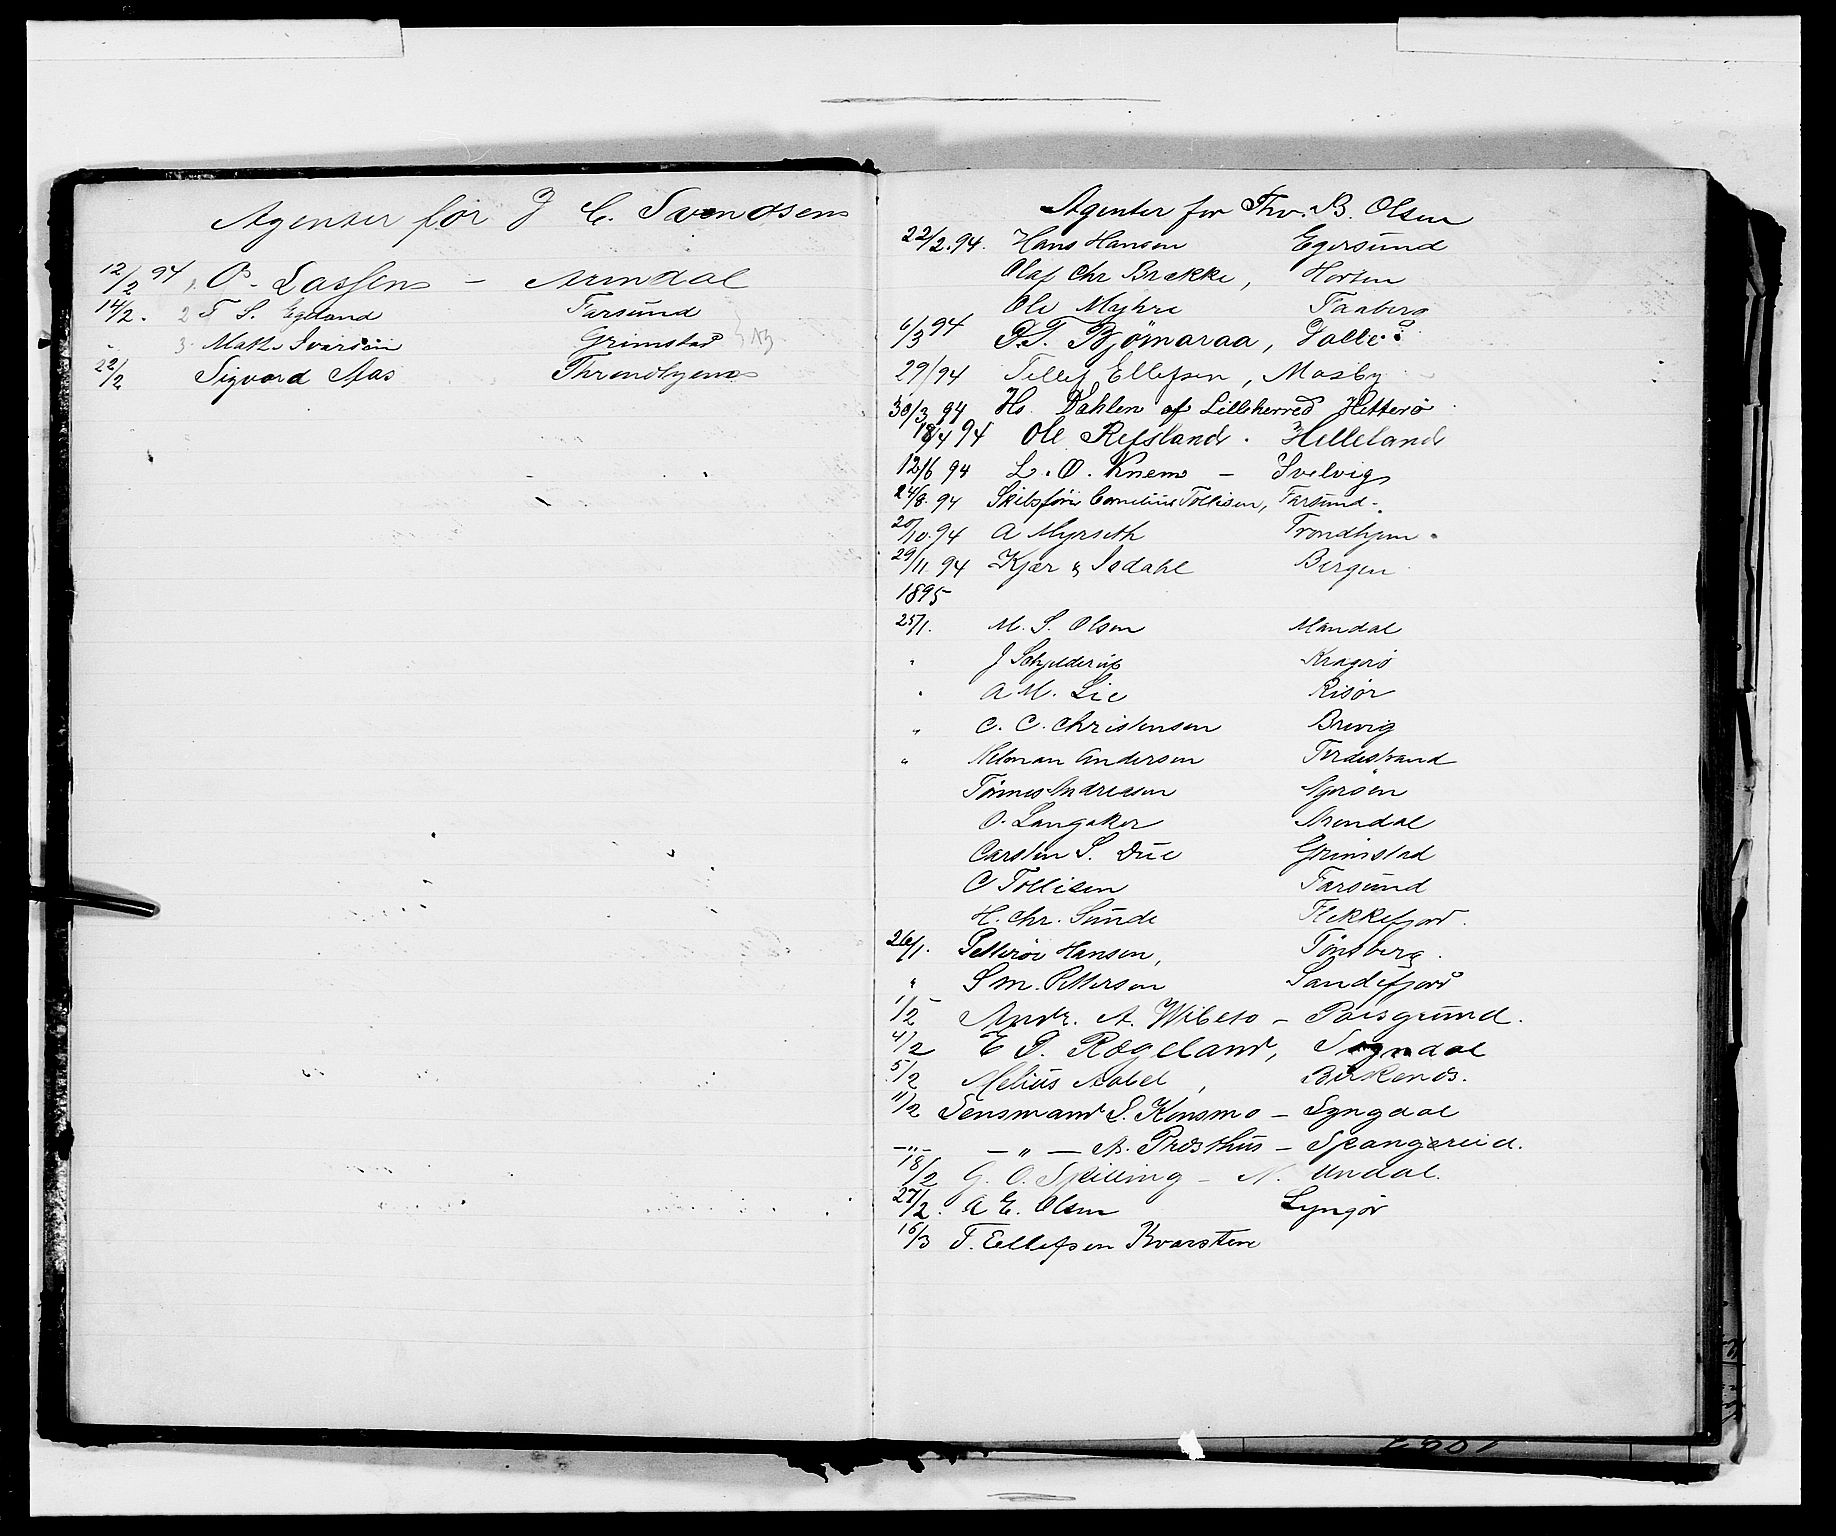 Agenter for J C. Svendsen
12/2 94 1. O. Lassen – Arendal
14/2. 2 T S. Egeland Farsund
" 3. Math. Ivarsen Grimstad
22/2 Sigvard Aas Throndhjem
Agenter for Thv. B. Olsen
22/2.94. Hans Hansen Egersund
Olaf Chr Brække, Horten
Ole Myhre Faaberg
6/3 94 P.T. Bjömaraa, Valle
29/ 94 Tellef Ellefsen, Mosby
30/3 94 Hs. Dahlen af Lilleherred Hitterö
18/4 94 Ole Refsland. Helleland
12/6 94 L. O. Knem – Svelvig
24/8 94 Skibsförer Cornelius Tollisen, Farsund.
20/10.94 A Myrseth Trondhjem.
29/11 94 Kjær & Isdahl Bergen
1895
25/1. M. S. Olsen Mandal
" J Schjelderup Kragerö
" A M. Lie Risör
" C. C. Christensen Brevig
" Andersen Tvedestrand
Tönnes Andresen
O. Langaker Arendal
Carsten S. Due Grimstad
C Tollisen Farsund
H. Chr. Sunde Flekkefjord.
26/1. Petteröe Hansen, Tönsberg.
" S M. Pettersen Sandefjord
1/2 Andr. A. Wibeto – Porsgrund.
4/2 E P. Rægeland, Sogndal
5/2 Melius Aabel, Birkenes.
11/2 Lensmand S. Konsmo – Lyngdal
– " – – " – As. Presthus – Spangereid.
18/2 G. O. Spilling – N. Undal.
27/2. A E. Olsen Lyngör
16/3 T. Ellefsen Kvarsten